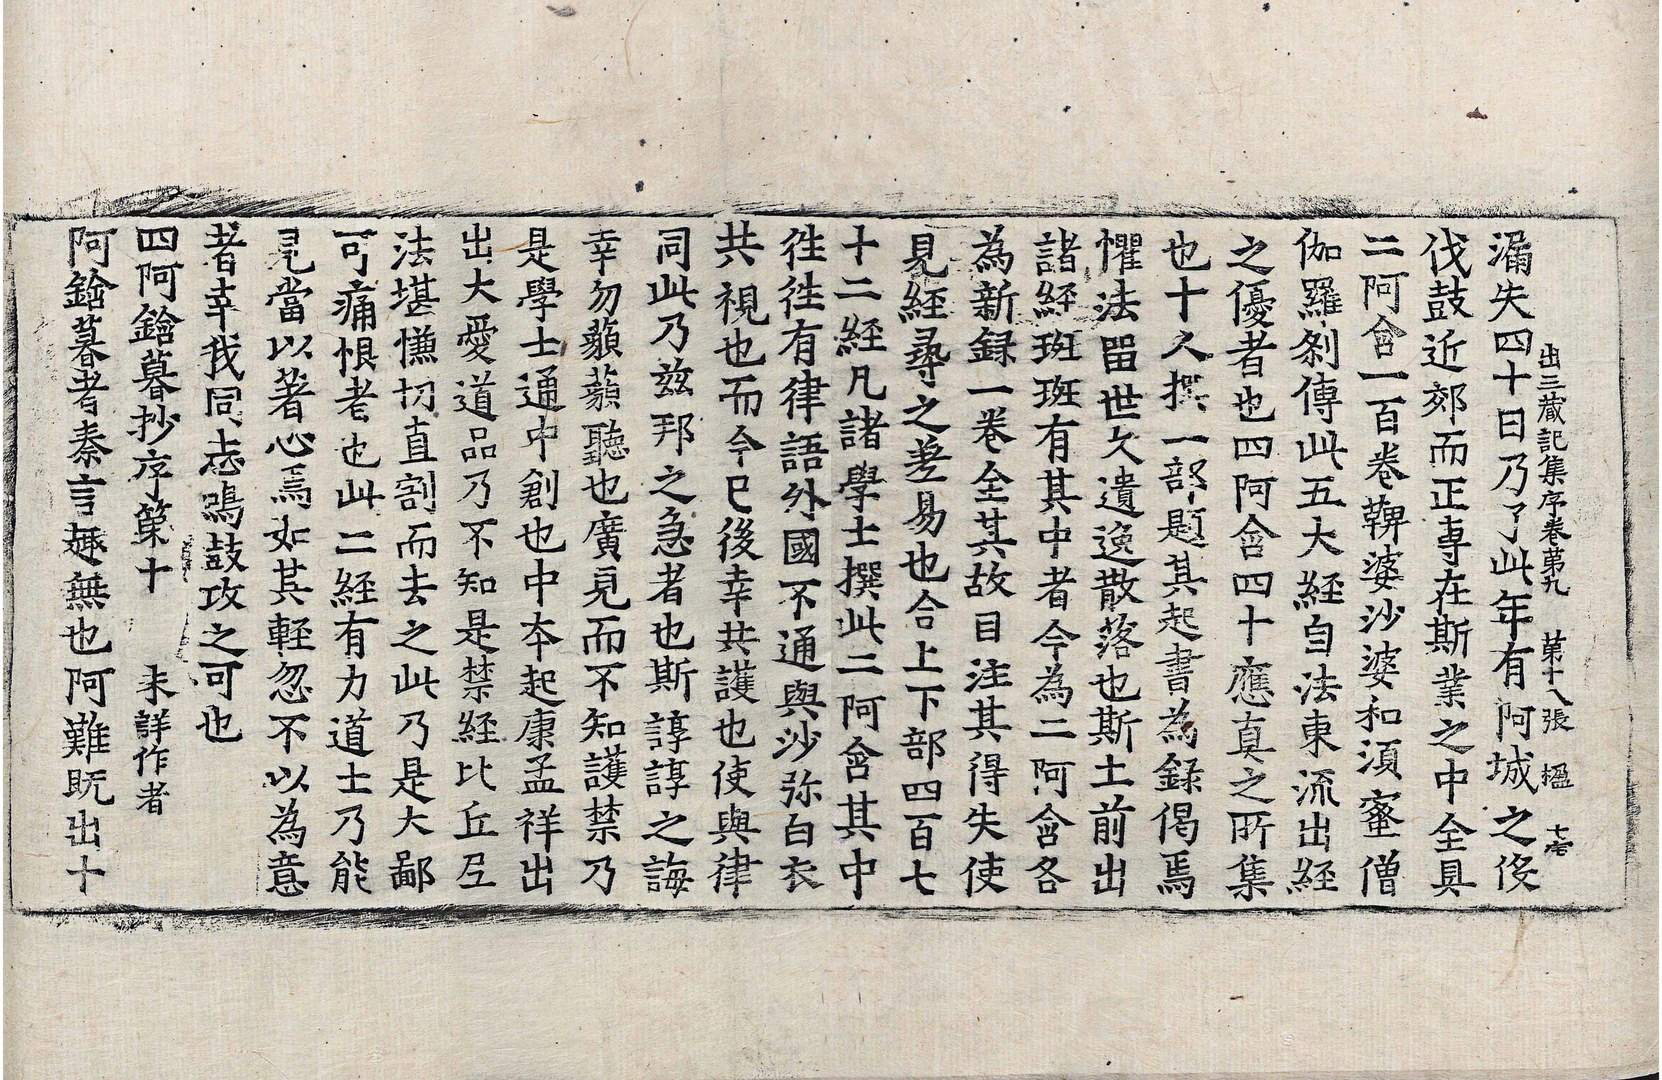 出三藏記集序卷第九 第十八張 楹
漏失四十日乃了此年有阿城之役
伐鼓近郊而正專在斯業之中全具
二阿含一百卷鞞婆沙婆和須蜜僧
伽羅剎傳此五大經自法東流出經
之優者也四阿含四十應真之所集
也十人撰一部題其起書為錄偈焉
懼法留世久遺逸散落也斯土前出
諸經班班有其中者今為二阿含各
為新録一卷全其故目注其得失使
見經尋之差易也合上下部四百七
十二經凡諸學士撰此二阿含其中
徃徃有律語外國不通與沙弥白衣
共視也而今已後幸共護也使與律
同此乃兹邦之急者也斯諄諄之誨
幸勿藐藐聽也廣見而不知護禁乃
是學士通中創也中夲起康孟祥出
出大愛道品乃不知是禁經比丘尼
法堪慊切直割而去之此乃是大鄙
可痛恨者也此二經有力道士乃能
見當以著心焉如其輕忽不以為意
者幸我同志鳴鼓攻之可也
四阿鋡暮抄序第十 未詳作者
阿鋡暮者秦言趣無也阿難既出十